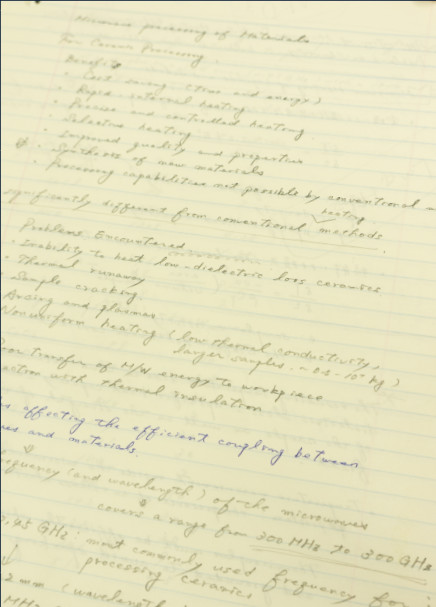 Microwave processing of Materials
For Ceramic Processing.
Benefits
• Cost saving (time and energy)
• Rapid internal heating
• Precise and controlled heating
• Selective heating
• Improved quality and properties
• Synthesis of new materials
• Processing capabilities not possible by conventional
heating
significantly different from conventional methods.
Problems Encountered
• Inability to heat low-dielectric loss ceramics
• Thermal runaway
• Sample cracking
Arcing and plasmas
Nonuniform heating (low thermal conductivity,
larger samples,
transfer of M/W energy to workpiece
with thermal insulation
affecting the efficient coupling between
and materials.
frequency (and wavelength) of the microwaves
covers a range from 300 MHz to 300 GHz
GHz: most commonly used frequency for
processing ceramics
2 mm (wavelength
MHz